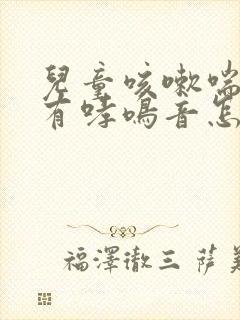 兒童咳嗽喘
有哮鳴音怎
福澤徹三 薩